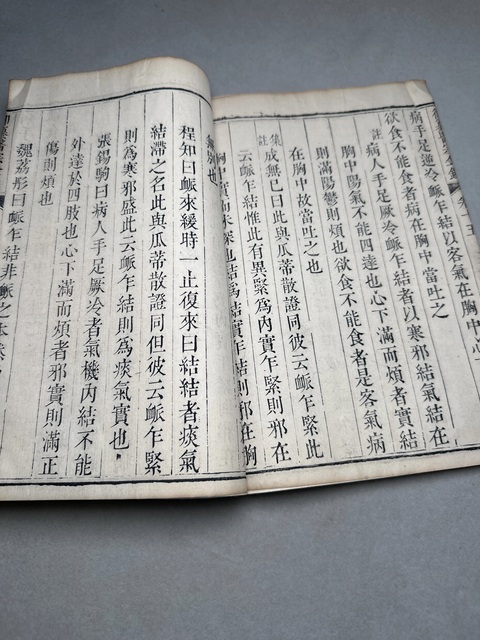 病手足逆冷脈乍結以客氣在胸中心下
欲食不能食者病在胸中當吐之
註病人手足厥冷脈乍結者以寒邪結氣結在
胸中陽氣不能四達也心下滿而煩者實結
則滿陽鬱則煩也欲食不能食者是客氣病
在胸中故當吐之也
集註成無己曰此與瓜蒂散證同彼云脈乍緊此
云脈乍結惟此有異緊爲內實乍緊則邪在
胸中實
程知曰脈來緩時一止復來曰結結者痰氣
結滯之名此與瓜蒂散證同但彼云脈乍緊
則爲寒邪盛此云脈乍結則爲痰氣實也
張錫駒曰病人手足厥冷者氣機內結不能
外達於四肢也心下滿而煩者邪實則滿正
傷則煩也
魏荔彤曰脈乍結非脈之